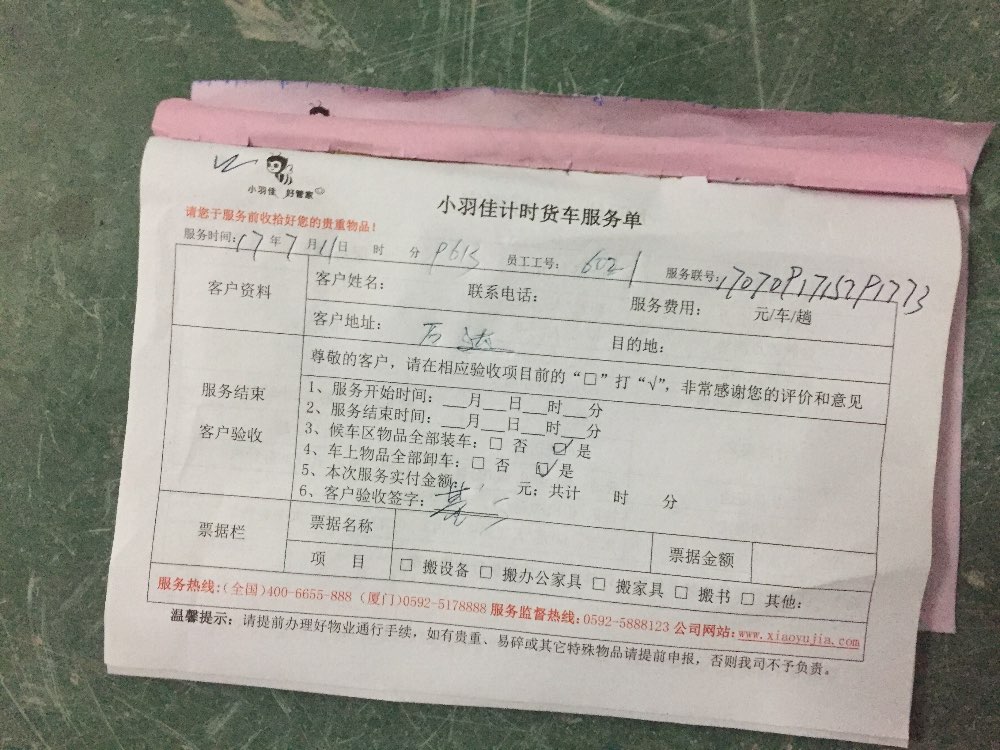 小羽佳 好管家
小羽佳计时货车服务单
请您于服务前收拾好您的贵重物品!
服务时间: 17年7月11日 时 分 员工工号: 6021 服务联号:
客户资料 客户姓名: 联系电话: 服务费用: 元/车/趟
客户地址: 目的地:
服务结束 客户验收
尊敬的客户,请在相应验收项目前的“□”打“√”,非常感谢您的评价和意见
1、服务开始时间:__月__日__时__分
2、服务结束时间:__月__日__时__分
3、候车区物品全部装车:□ 否 ☑ 是
4、车上物品全部卸车:□ 否 ☑ 是
5、本次服务实付金额: 元;共计 时 分
6、客户验收签字:
票据栏 票据名称 票据金额
项 目 □ 搬设备 □ 搬办公家具 □ 搬家具 □ 搬书 □ 其他:
服务热线:(全国)400-6655-888 (厦门)0592-5178888 服务监督热线:0592-5888123 公司网站:www.xiaoyujia.com
温馨提示:请提前办理好物业通行手续,如有贵重、易碎或其它特殊物品请提前申报,否则我司不予负责。